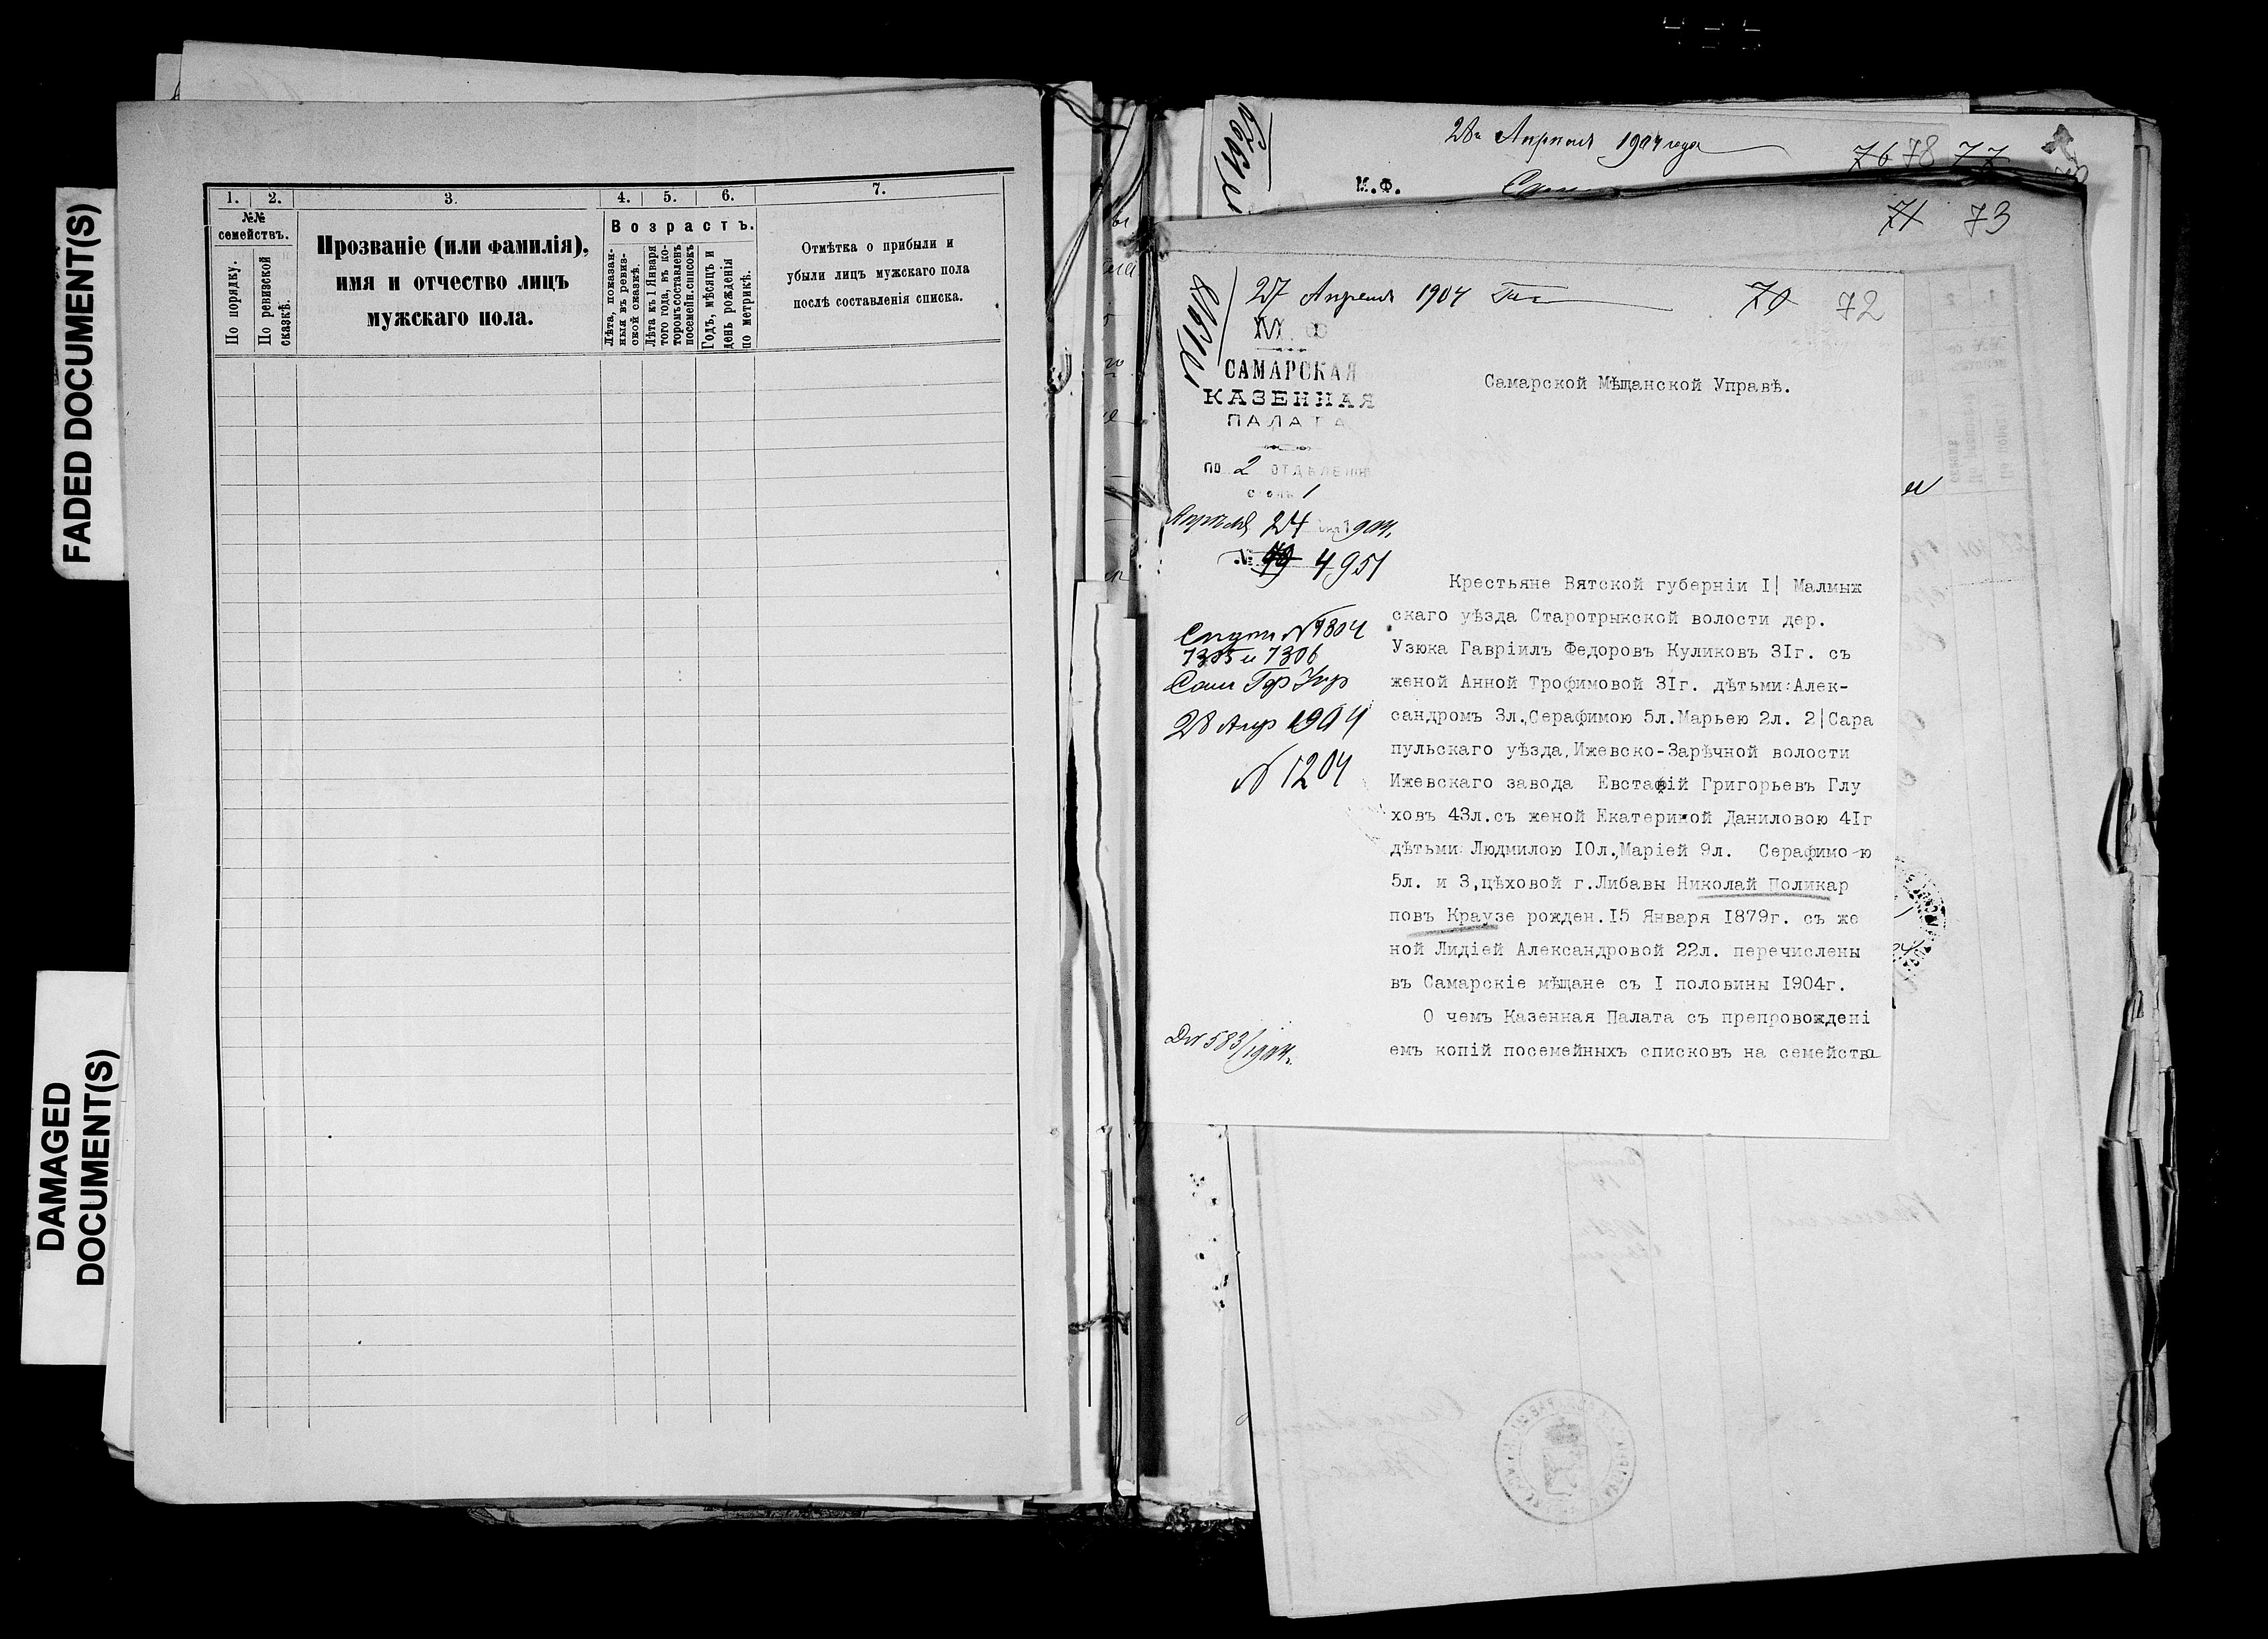 FADED DOCUMENT(S)
DAMAGED
DOCUMENT(S)
1. 2. 3. 4. 5. 6. 7.
№№
семействъ.
По порядку.
По ревизской
сказкѣ.
Прозваніе (или фамилія),
имя и отчество лицъ
мужскаго пола.
Возрастъ.
Лѣта, показан-
ныя въ ревиз-
ской сказкѣ.
Лѣта къ 1 Января
того года, въ ко-
торомъ составленъ
посемейн. списокъ
Годъ, мѣсяцъ и
день рожденія
по метрикѣ.
Отмѣтка о прибыли и
убыли лицъ мужскаго пола
послѣ составленія списка.
28 Апрѣля 1904 года
76 78 77
М.Ф.
71 73
27 Апрѣля 1904
70 72
М. Ф
САМАРСКАЯ
КАЗЕННАЯ
ПАЛАТА
ПО 2 ОТДѢЛЕНІЮ
столъ 1
Апрѣля 24 1904.
№ 4951
7305 и 7306
28 Апр 1904
N 1204
583/1904.
Самарской Мѣщанской Управѣ.
Крестьяне Вятской губерніи I| Малмыж
скаго уѣзда Старотрыкской волости дер.
Узюка Гавріилъ Федоровъ Куликовъ 3Iг. съ
женой Анной Трофимовой 3Iг. дѣтьми:Алек-
сандромъ 3л.,Серафимою 5л.Марьею 2л. 2|Сара
пульскаго уѣзда,Ижевско-Зарѣчной волости
Ижевскаго завода Евстафій Григорьевъ Глу
ховъ 43л.съ женой Екатериной Даниловою 4Iг
дѣтьми Людмилою I0л.,Маріей 9л. Серафимо-ю
5л. и 3,цѣховой г.Либавы Николай Поликар
повъ Краузе рожден.I5 Января I879г. съ же
ной Лидіей Александровой 22л. перечислены
въ Самарскіе мѣщане съ I половины I904г.
О чемъ Казенная Палата съ препровожденi
емъ копій посемейныхъ списковъ на семейства